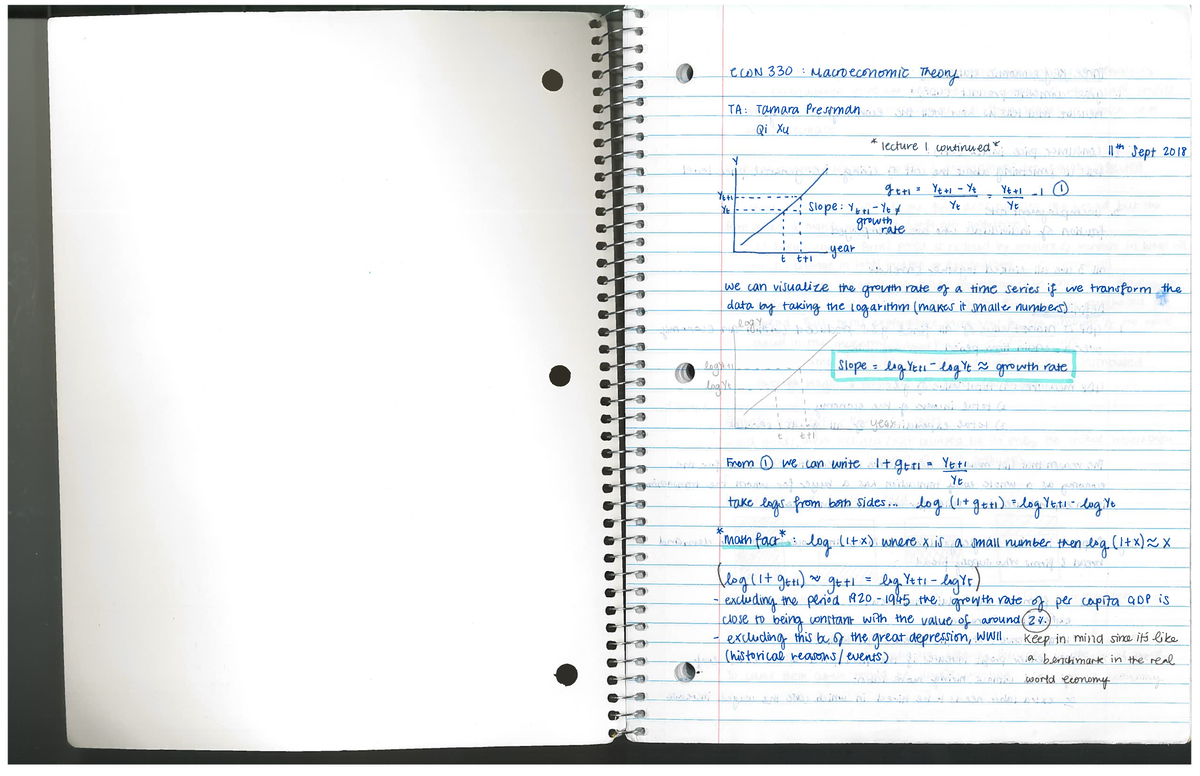 ECON 330 : Macroeconomic Theory
TA: Tamara Pressman
Qi Xu
* lecture 1 continued *
11th Sept 2018
Y
Yt+1
Yt
t t+1
year
Slope: Yt+1 - Yt ≠
growth
rate
gt+1 = (Yt+1 - Yt)/Yt = Yt+1/Yt - 1 ①
we can visualize the growth rate of a time series if we transform the
data by taking the logarithm (makes it smaller numbers)
log Y
log Yt+1
log Yt
t t+1
year
Slope = log Yt+1 - log Yt ≈ growth rate
From ① we can write 1 + gt+1 = Yt+1/Yt
take logs from both sides... log (1 + gt+1) = log Yt+1 - log Yt
*math fact* : log (1+x) where x is a small number then log (1+x) ≈ x
(log (1 + gt+1) ≈ gt+1 = log Yt+1 - log Yt)
- excluding the period 1920 - 1945 the growth rate of per capita GDP is
close to being constant with the value of around 2%.
- excluding this bc of the great depression, WWII
(historical reasons / events)
keep in mind since it's like
a benchmark in the real
world economy